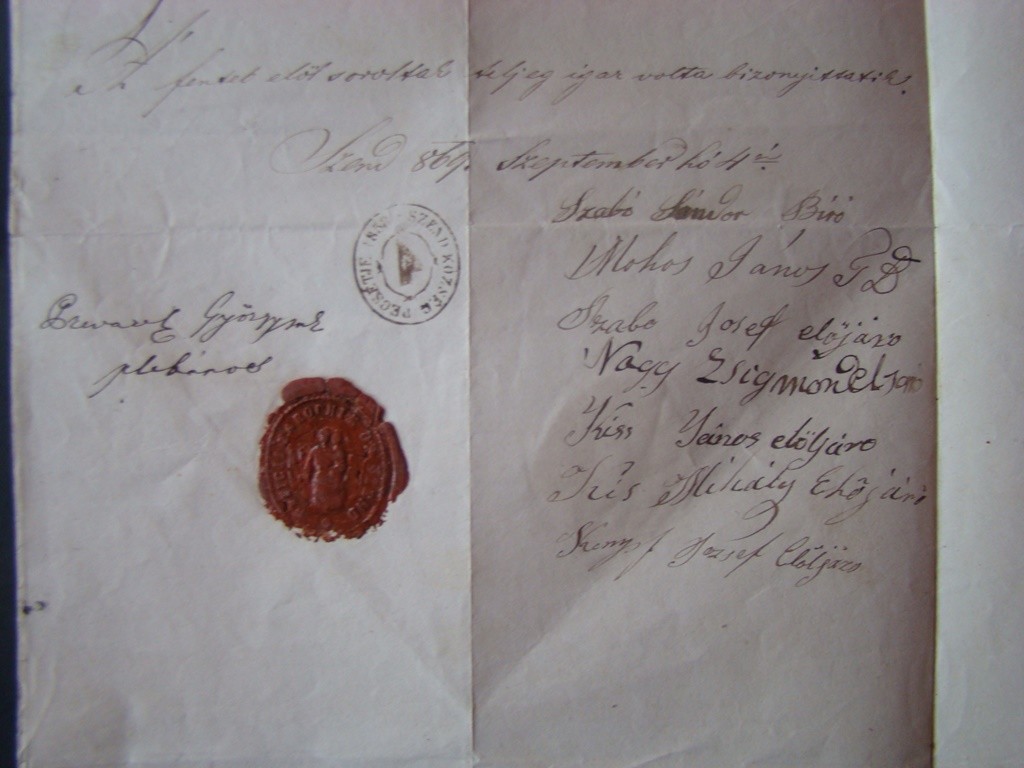 fenteb elől soroltak teljes igaz volta bizonyittatik.
Szend 869. Szeptember hó 4én
Szabó Sándor Biró
Mohos János T B
Szabo Josef előjáro
Nagy Zsigmond
Kiss János előljáro
Kis Mihály Előjáró
József Előljáro
SZEND KÖZSÉG PECSÉTJE
György
plebános